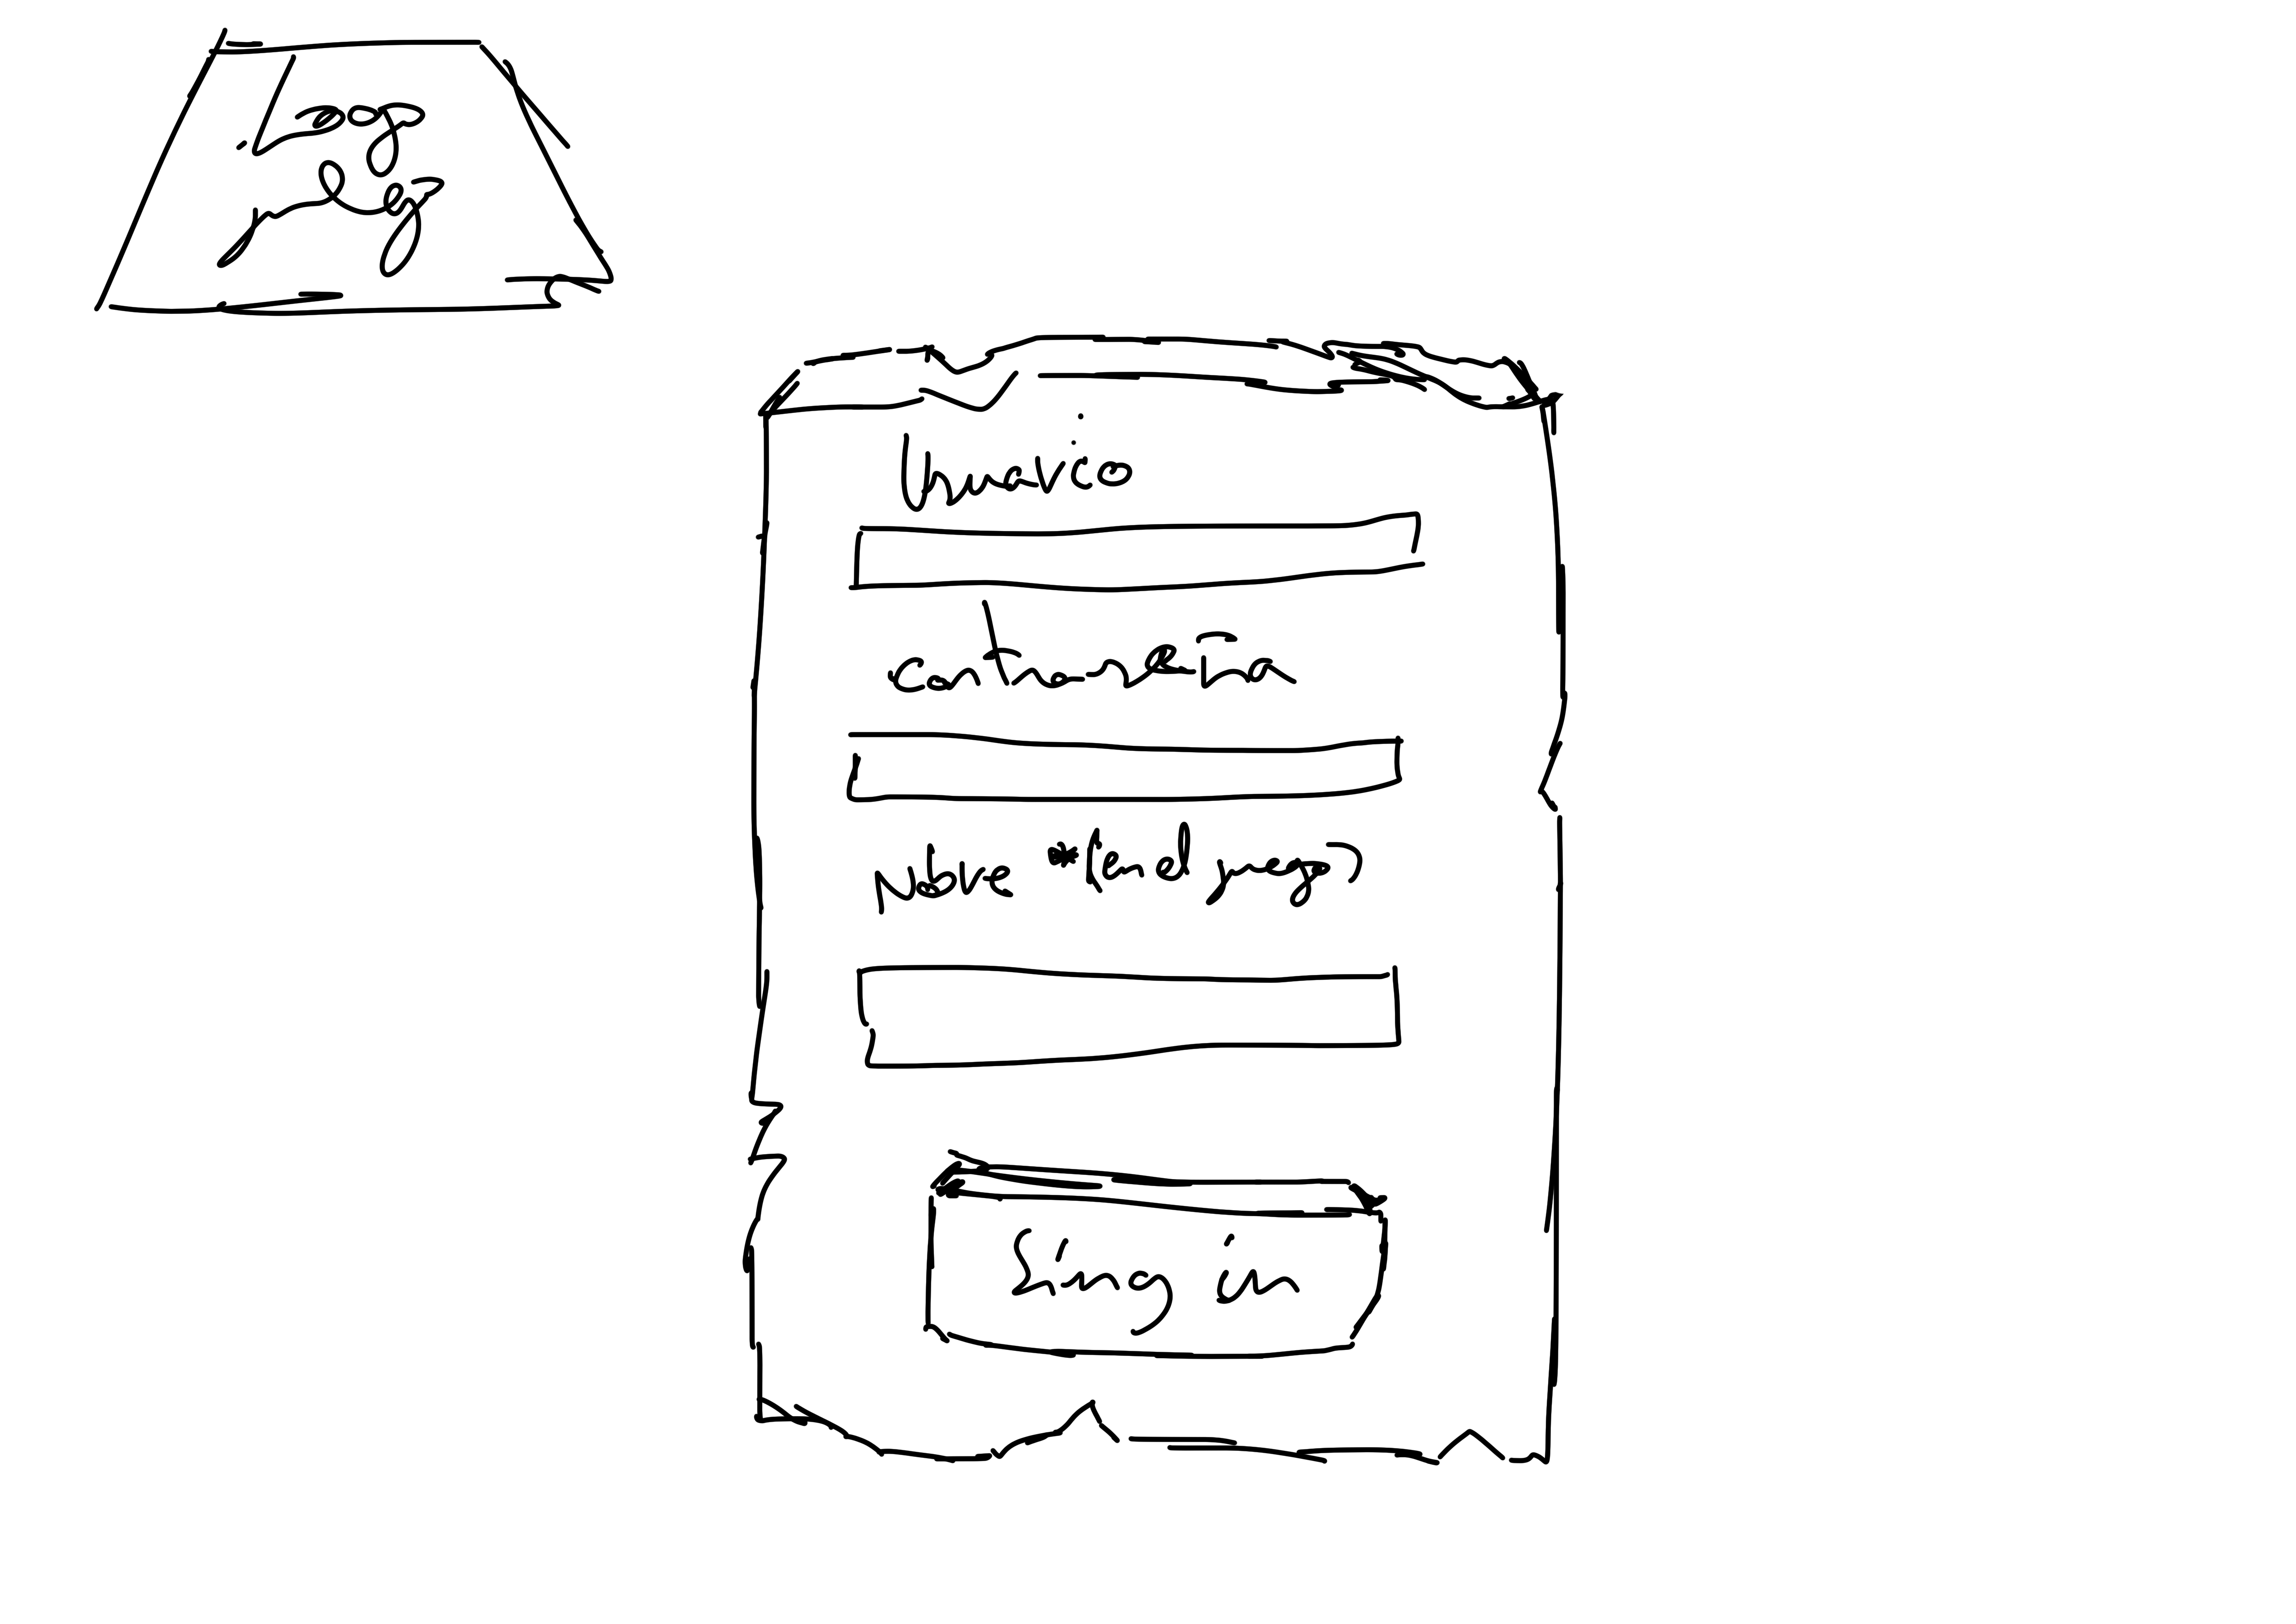 Logo
juego
Usuario
contraseña
Nombre en el juego
Sing in